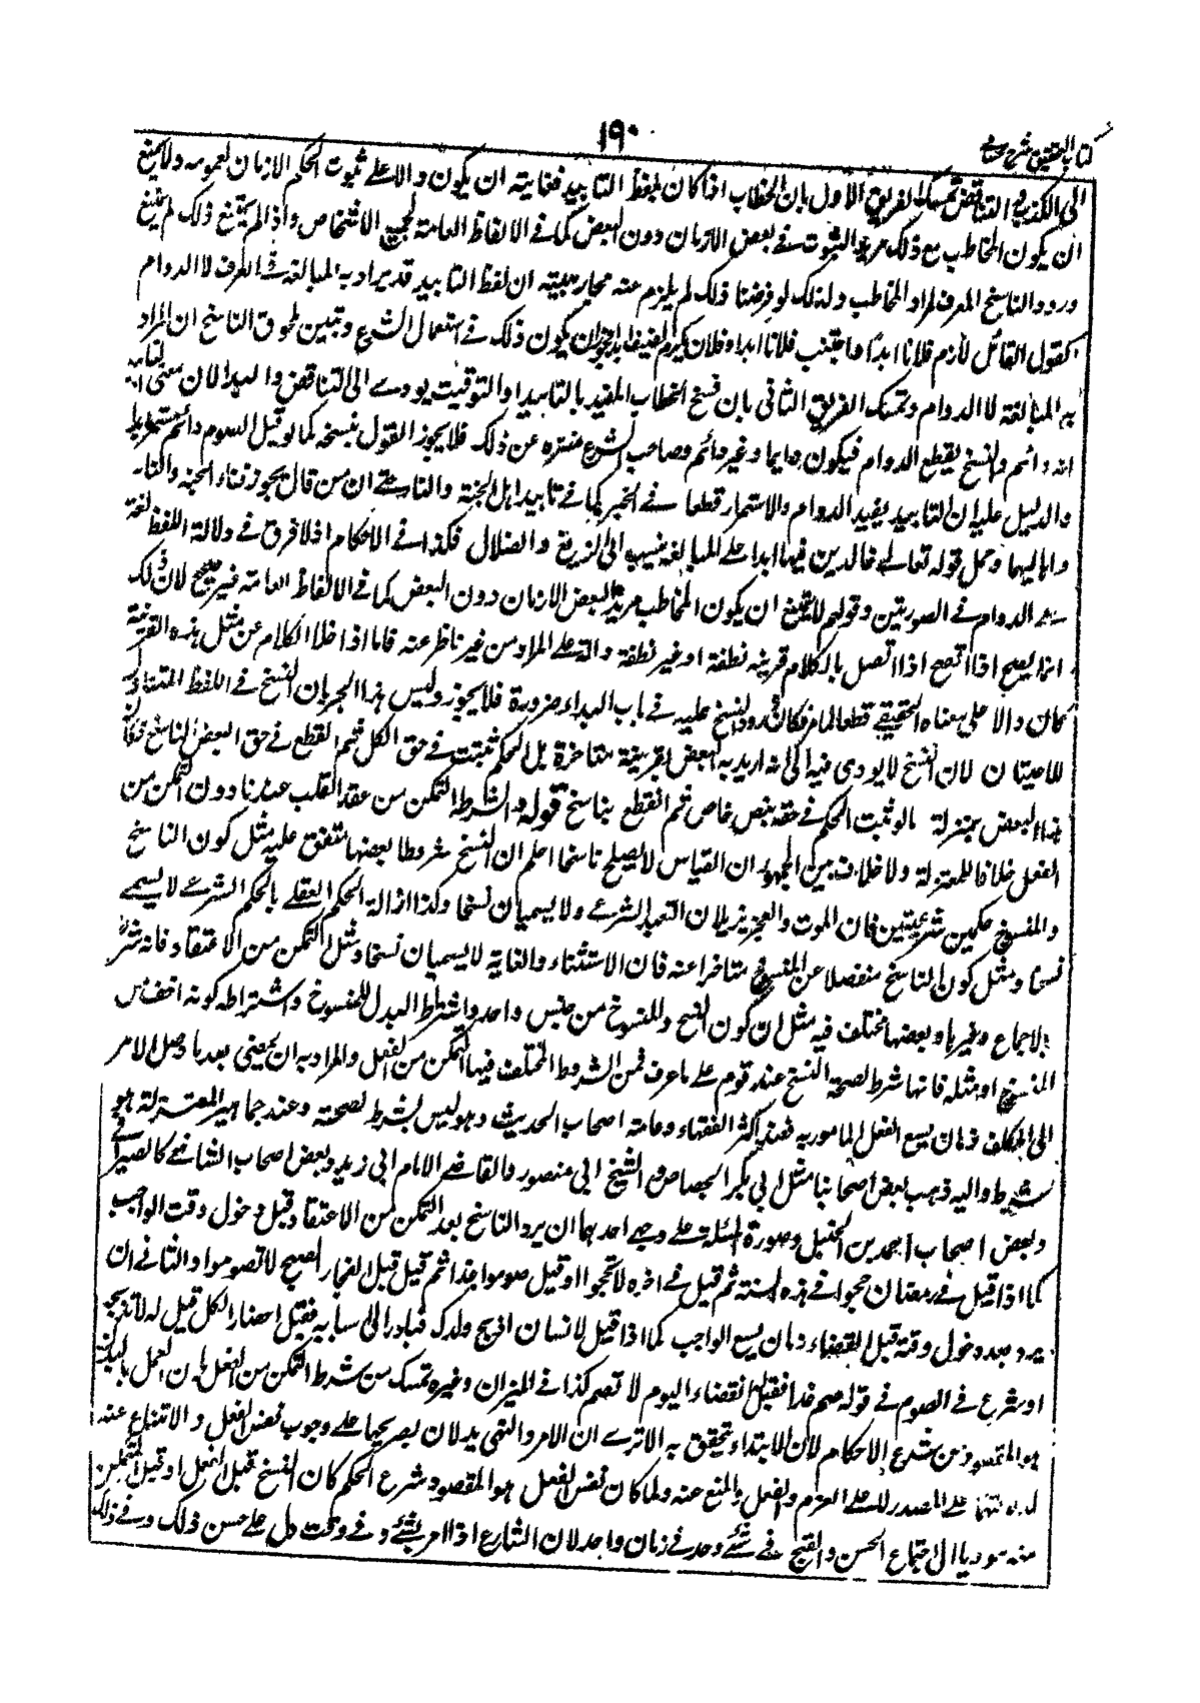 ١٩٠
كتاب التحقيق شرح حسامي
الى الكذب و التناقض تمسك الفريق الاول بان الخطاب اذا كان بلفظ التابيد فغايته ان يكون دالا على ثبوت الحكم الازمان لعمومه ولا يمتنع
ان يكون المخاطب مع ذلك مريد الثبوت في بعض الازمان دون البعض كما في الالفاظ العامة لجميع الاشخاص واذا لم يمتنع ذلك لم يمتنع
ورود الناسخ المعرف لمراد المخاطب ولذلك لو فرضنا ذلك لم يلزم عنه محال يبينه ان لفظ التابيد قد يراد به المبالغة في العرف لا الدوام
كقول القائل لازم فلانا ابدا واجتنب فلانا ابدا وفلان يكرم الضيف ابدا فجوزان يكون ذلك في استعمال الشرع وتبين لحوق الناسخ ان المراد
به المبالغة لا الدوام وتمسك الفريق الثاني بان نسخ الخطاب المقيد بالتابيد او التوقيت يودي الى التناقض والبداء لان معنى التابيد
انه دائم والنسخ يقطع الدوام فيكون دايما وغير دائم وصاحب الشرع منزه عن ذلك فلا يجوز القول بنسخه كما لو قيل الصوم دائم مستمر ابدا
والدليل عليه ان التابيد يفيد الدوام والاستمرار قطعا في الخبر كما في تابيد اهل الجنة والنار حتى ان من قال يجوز فناء الجنة والنار
واهاليهما وحمل قوله تعالى خالدين فيها ابدا على المبالغة ينسب الى الزيغ والضلال فكذا في الاحكام اذ لا فرق في دلالة اللفظ لغة
الدوام في الصورتين وقولهم لا يمتنع ان يكون المخاطب مريدا لبعض الازمان دون البعض كما في الالفاظ العامة غير صحيح لان ذلك
انما يصح اذا اتصل بالكلام قرينة نطقية او غير نطقية دالة على المراد من غير تاخر عنه فاما اذا خلا الكلام عن مثل هذه القرينة
كان دالا على معناه الحقيقي قطعا لما مر فكان ورود النسخ عليه في باب البداء ضرورة فلا يجوز وليس هذا كجريان النسخ في اللفظ المتناول
للاعيان لان النسخ لا يودي فيه الى انه اريد به البعض بقرينة متاخرة بل الحكم ثبت في حق الكل ثم انقطع في حق البعض بالناسخ فكان
هذا البعض بمنزلة ما لو ثبت الحكم في حقه بنص خاص ثم انقطع بناسخ قوله والشرط التمكن من عقد القلب عندنا دون التمكن من
الفعل خلافا للمعتزلة ولا خلاف بين الجمهور ان القياس لا يصلح ناسخا اعلم ان للنسخ شروطا بعضها متفق عليه مثل كون الناسخ
والمنسوخ حكمين شرعيتين فان الموت والعجز يزيلان التعبد الشرعي ولا يسميان نسخا وكذا ازالة الحكم العقلي بالحكم الشرعي لا يسمى
نسخا ومثل كون الناسخ منفصلا عن المنسوخ متاخرا عنه فان الاستثناء والغاية لا يسميان نسخا ومثل التمكن من الاعتقاد فانه شرط
بالاجماع وغيرها وبعضها مختلف فيه مثل ان كون الناسخ والمنسوخ من جنس واحد واشتراط البدل للمنسوخ واشتراطه كونه اخف من
المنسوخ او مثله فانها شرط لصحة النسخ عند قوم على ما عرف فمن الشروط المختلف فيها التمكن من الفعل والمراد به ان يمضي بعد ما وصل الامر
الى المكلف زمان يسع الفعل المامور به فعند اكثر الفقهاء وعامة اصحاب الحديث هو ليس بشرط لصحته وعند جماهير المعتزلة هو
شرط واليه ذهب بعض اصحابنا مثل ابي بكر الجصاص والشيخ ابي منصور والقاضي الامام ابي زيد وبعض اصحاب الشافعي كالصيرفي
وبعض اصحاب احمد بن الحنبل وصورة المسئلة على وجهين احدهما ان يرد الناسخ بعد التمكن من الاعتقاد وقبل دخول وقت الواجب
كما اذا قيل في رمضان حجوا في هذه السنة ثم قيل في اخره لا تحجوا او قيل صوموا غدا ثم قيل قبل انفجار الصبح لا تصوموا والثاني ان
يرد بعد دخول وقته قبل انقضاء زمان يسع الواجب كما اذا قيل لانسان اذبح ولدك فبادر الى اسبابه فقبل احضار الكل قيل له لا تذبح
او شرع في الصوم في قوله صم غدا فقيل قبل انقضاء اليوم لا تصم كذا في الميزان وغيره تمسك من شرط التمكن من الفعل بان العمل بالبدن
هو المقصود من شرع الاحكام لان الابتداء تحقق به الا ترى ان الامر والنهي يدلان بصريحهما على وجوب نفس الفعل والامتناع عنه
لدلالتهما على المصدر لا على العزم والفعل والمنع عنه ولما كان نفس الفعل هو المقصود شرع الحكم كان النسخ قبل الفعل او قبل التمكن
منه موديا الى اجتماع الحسن والقبح في شئ واحد في زمان واحد لان الشارع اذا امر بشئ في وقت دل على حسن ذلك وفي ذلك